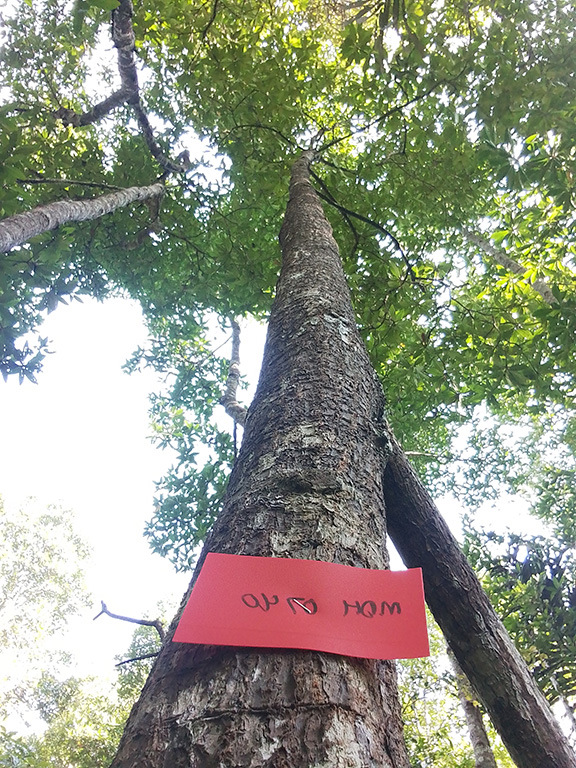 MDH 0740